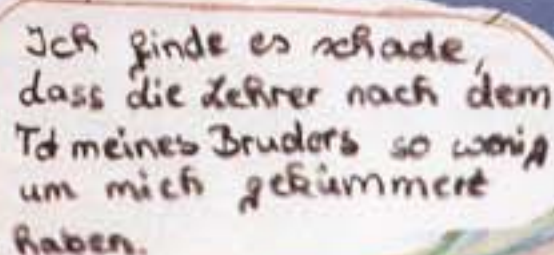 Ich finde es schade,
dass die Lehrer nach dem
Td meines Bruders so wenig
um mich gekümmert
haben.